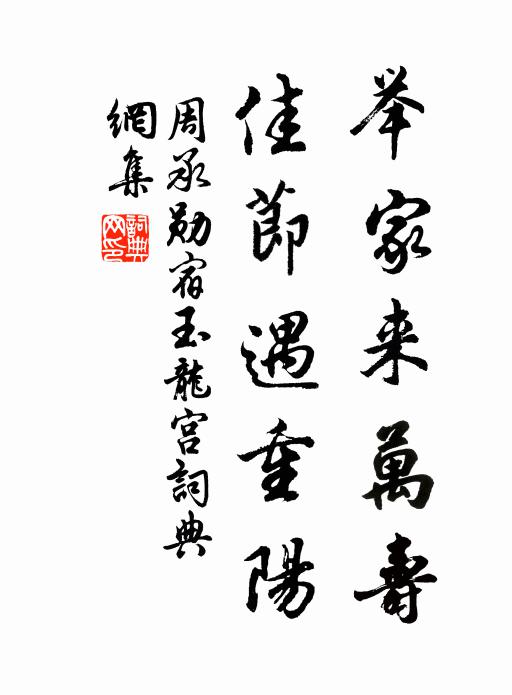 举家来萬壽
佳節遇重陽
周承勋宿玉龍宫詞典
網集
詞典
网印